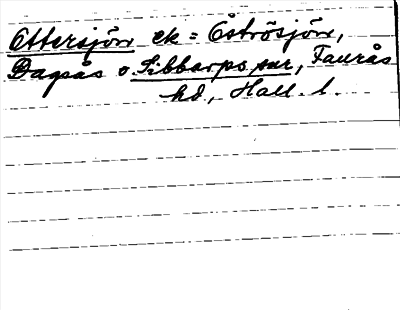 Ottersjön ek = Öströsjön,
Dagsås o. Sibbarps snr, Faurås
hd, Hall. l.